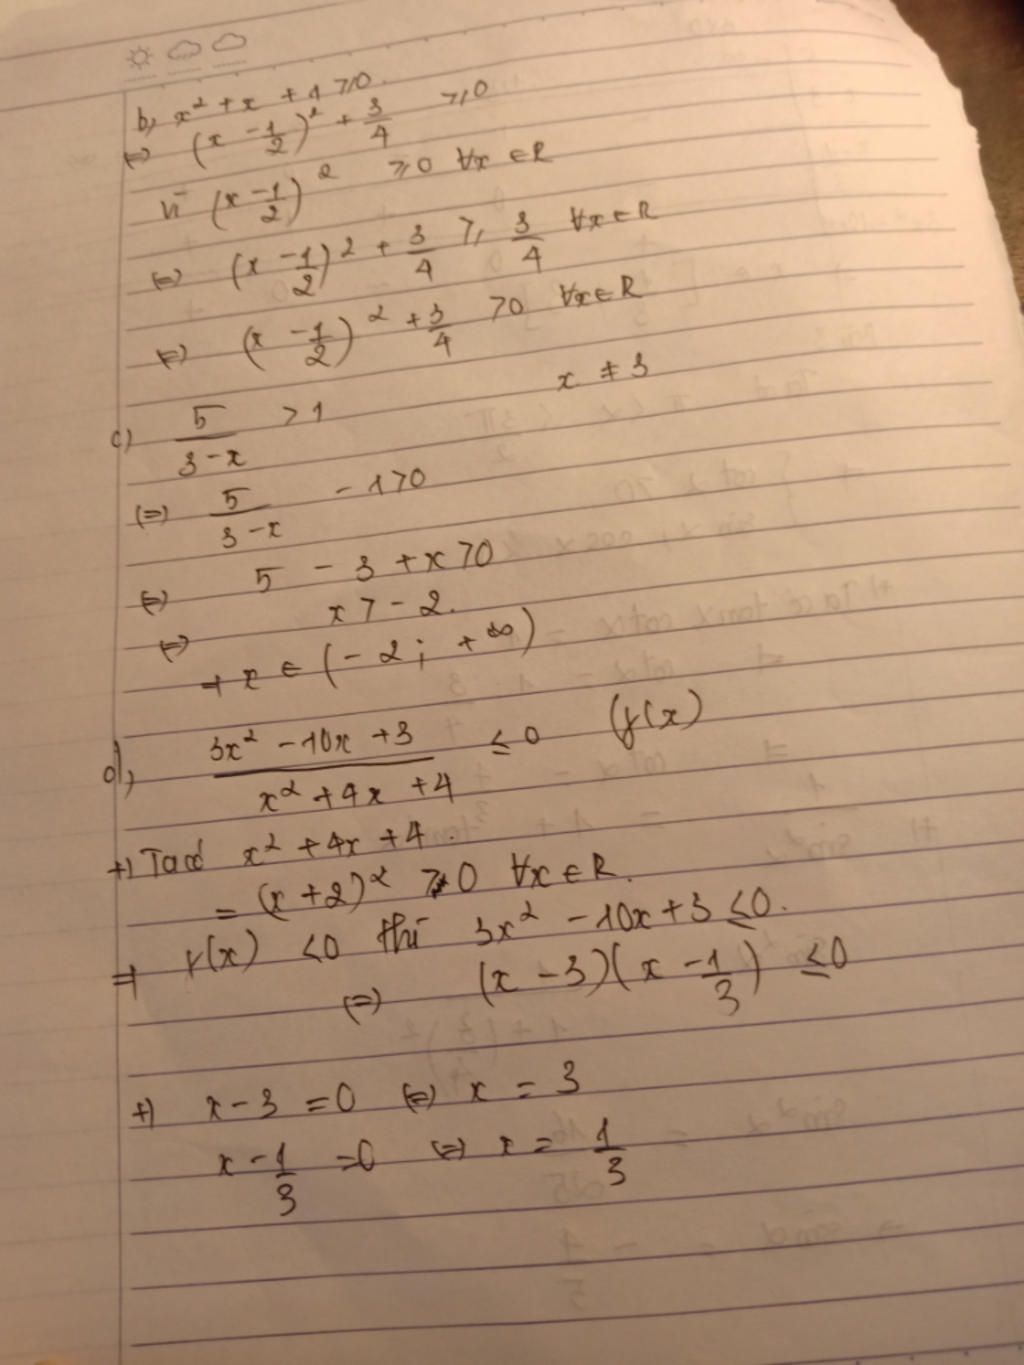 b, x² + x + 1 ≥ 0.
⇔ (x - 1/2)² + 3/4 ≥ 0
Vì (x - 1/2)² ≥ 0 ∀x ∈ R
⇔ (x - 1/2)² + 3/4 ≥ 3/4 ∀x ∈ R
⇔ (x - 1/2)² + 3/4 > 0 ∀x ∈ R
c) 5/(3 - x) > 1 x ≠ 3
⇔ 5/(3 - x) - 1 > 0
⇔ 5 - 3 + x > 0
⇔ x > - 2.
→ x ∈ (- 2; + ∞)
d, (3x² - 10x + 3)/(x² + 4x + 4) ≤ 0 (f(x)
+) Ta có x² + 4x + 4.
= (x + 2)² > 0 ∀x ∈ R.
⇒ f(x) ≤ 0 thì 3x² - 10x + 3 ≤ 0.
⇔ (x - 3)(x - 1/3) ≤ 0
+) x - 3 = 0 ⇔ x = 3
x - 1/3 = 0 ⇔ x = 1/3